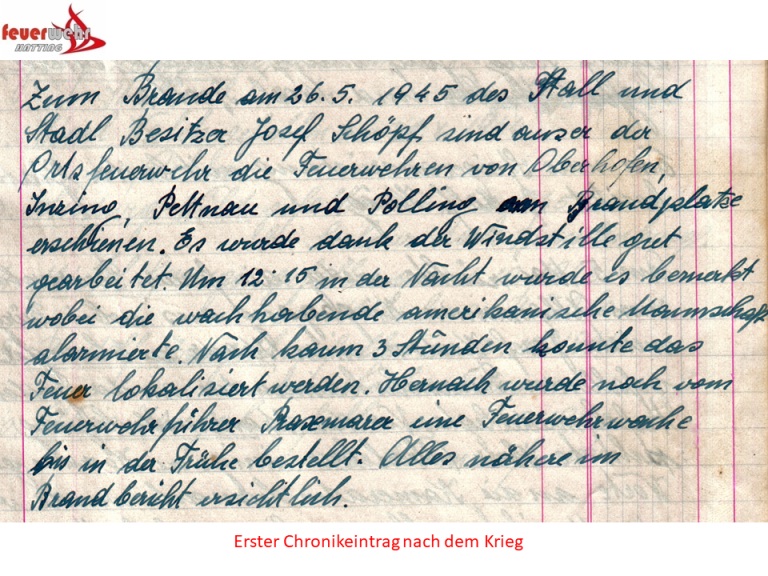 feuerwehr
HATTING
Zum Brande am 26. 5. 1945 des Stall und
Stadl Besitzer Josef Schöpf sind auser der
Ortsfeuerwehr die Feuerwehren von Oberhofen,
Inzing, Pettnau und Polling am Brandplatze
erschienen. Es wurde dank der Windstille gut
gearbeitet. Um 12.15 in der Nacht wurde es bemerkt
wobei die wachhabende amerikanische Mannschaft
alarmierte. Nach kaum 3 Stunden konnte das
Feuer lokalisiert werden. Hernach wurde noch vom
Feuerwehrführer Praxmarer eine Feuerwehrwache
bis in der Frühe bestellt. Alles nähere im
Brandbericht ersichtlich.
Erster Chronikeintrag nach dem Krieg